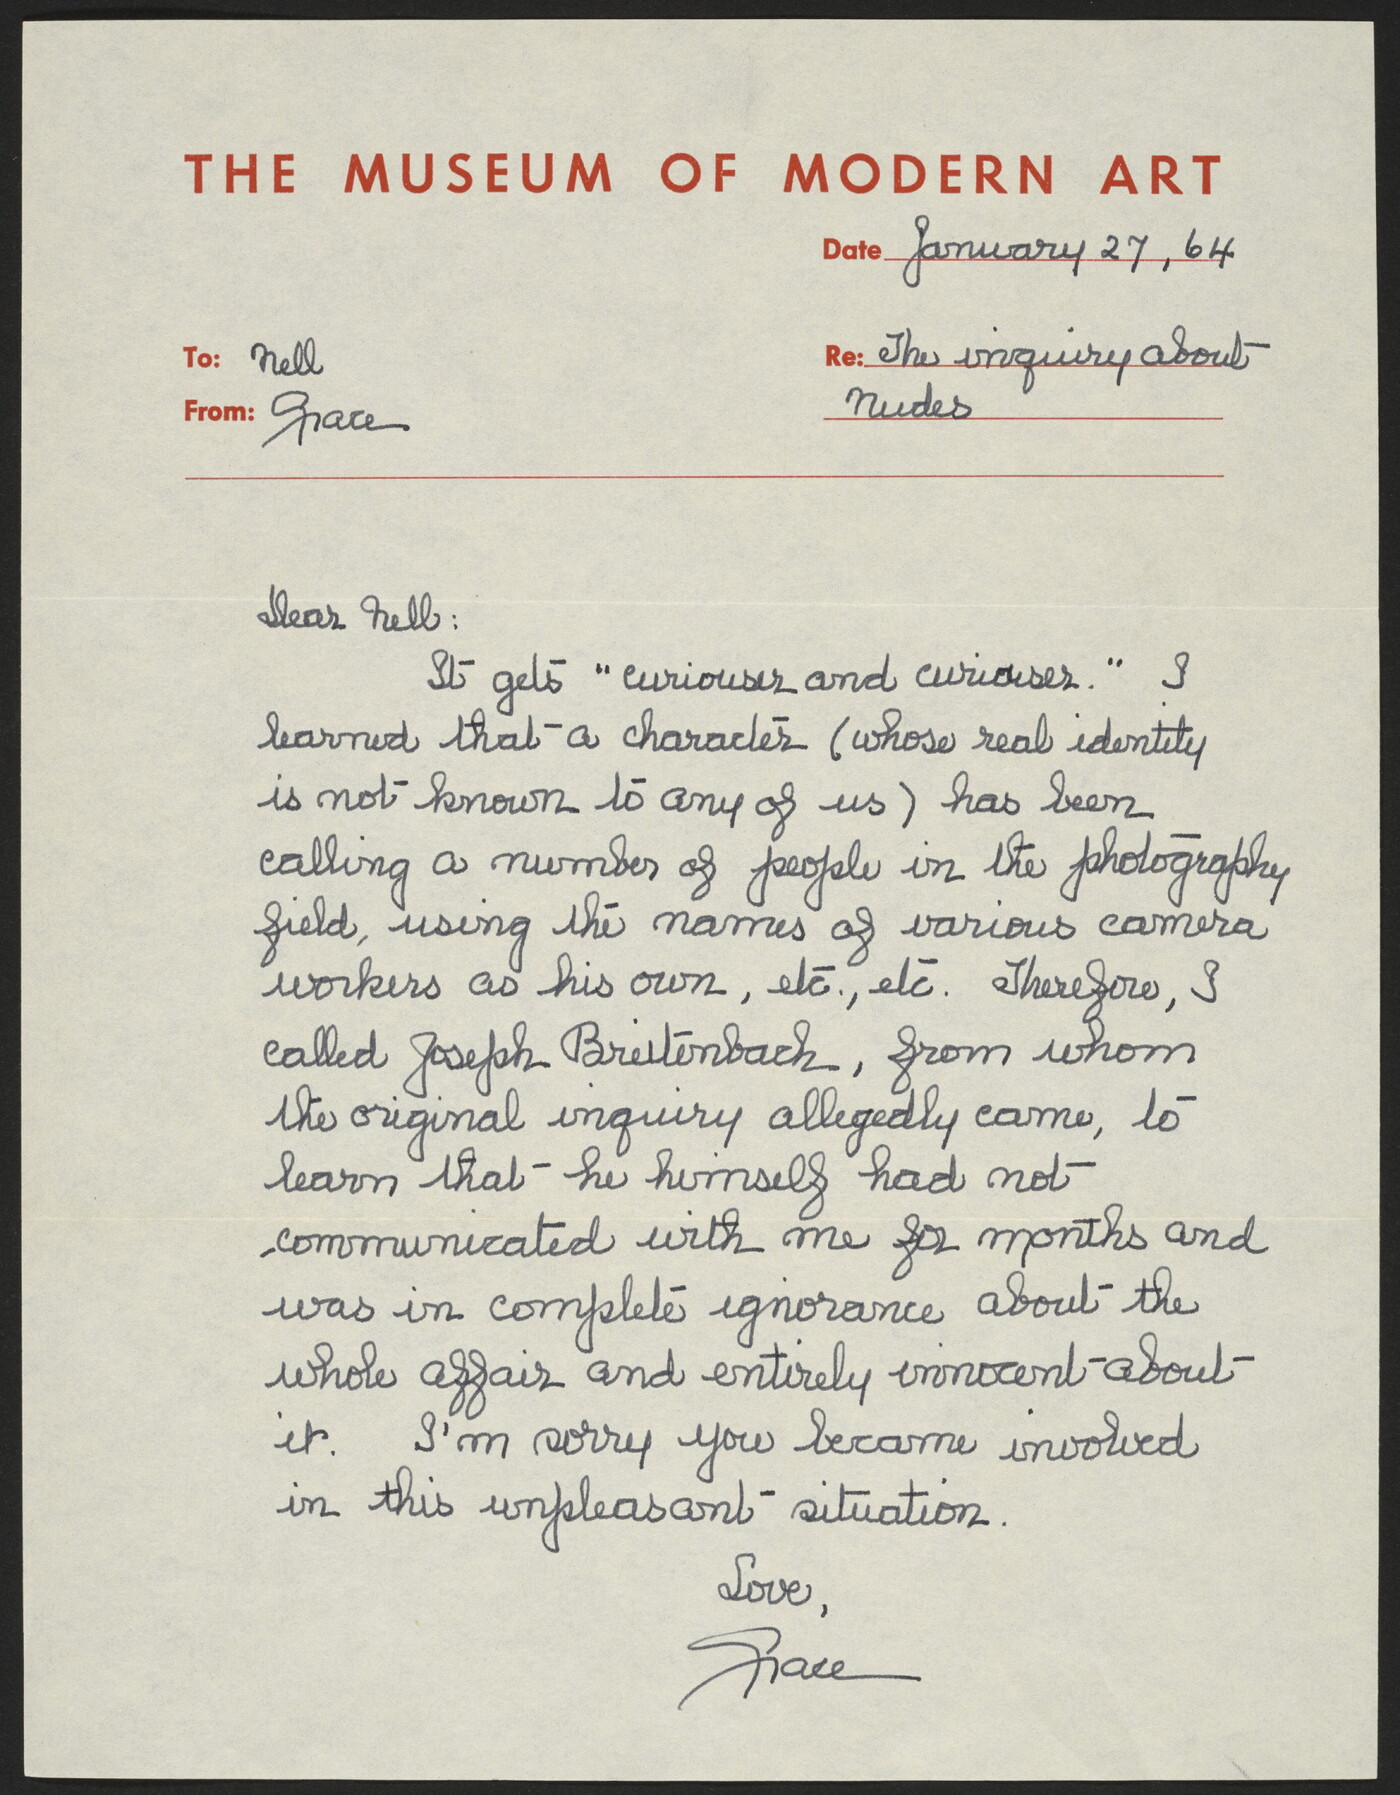 THE MUSEUM OF MODERN ART
Date January 27, 64
To: Nell
Re: The inquiry about
Nudes
From: Grace
Dear Nell:
It gets "curiouser and curiouser." I
learned that a character (whose real identity
is not known to any of us) has been
calling a number of people in the photography
field, using the names of various camera
workers as his own, etc., etc. Therefore, I
called Joseph Breitenbach, from whom
the original inquiry allegedly came, to
learn that he himself had not
communicated with me for months and
was in complete ignorance about the
whole affair and entirely innocent about
it. I'm sorry you became involved
in this unpleasant situation.
Love,
Grace